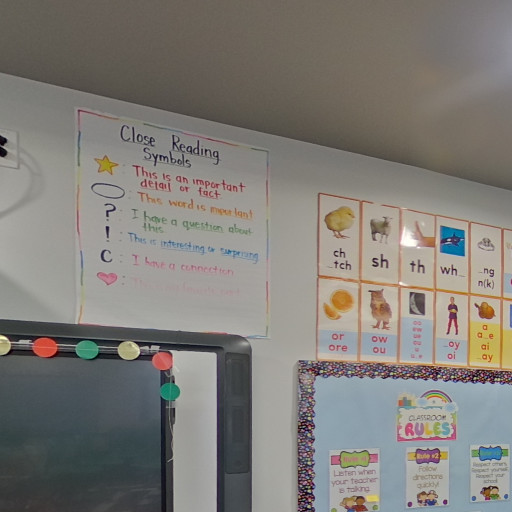 Close Reading
Symbols
: This is an important
detail or fact.
: This word is important
? : I have a question about
this.
! : This is interesting or surprising
C : I have a connection
ch
_tch
sh
th
wh_
_ng
n(k)
or
ore
ow
ou
oo
_oy
oi
a
a_e
ai
_ay
CLASSROOM
RULES
Listen when
your teacher
is talking.
Rule #2
Follow
directions
quickly!
Respect others.
Respect yourself.
Respect your
school.